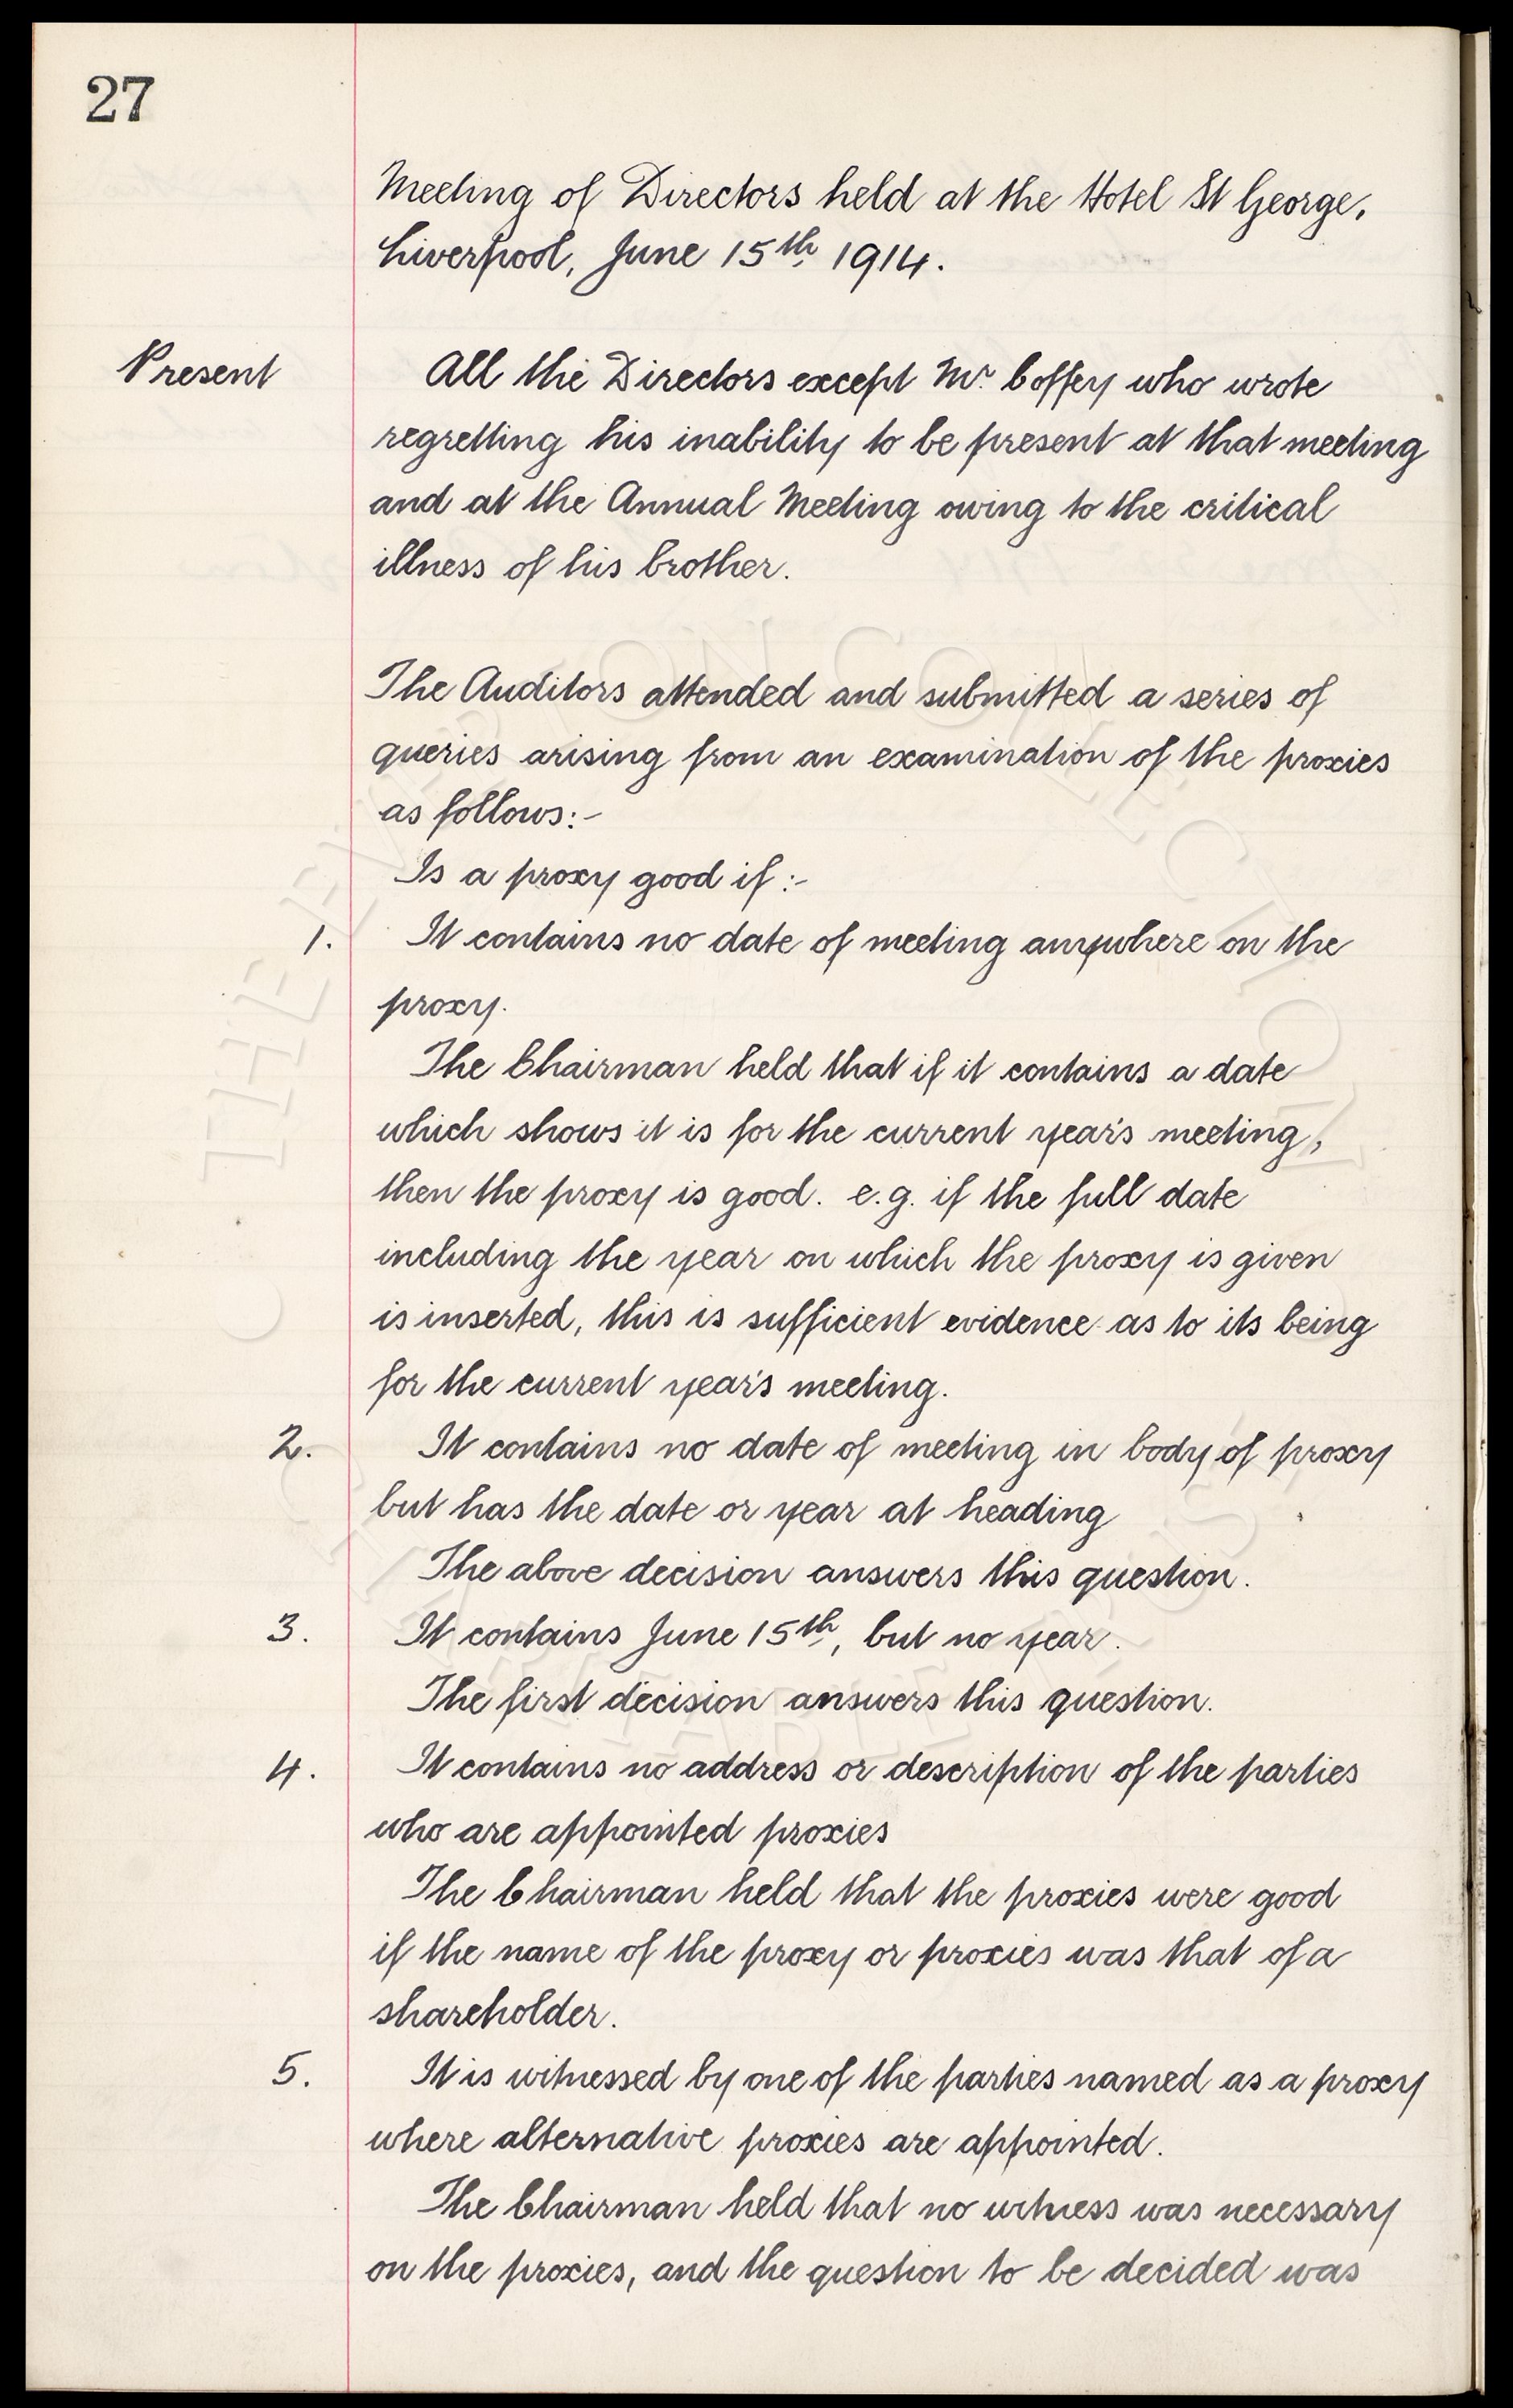 27
Meeting of Directors held at the Hotel St George,
Liverpool, June 15th 1914.
Present
All the Directors except Mr. Coffey who wrote
regretting his inability to be present at that meeting
and at the Annual Meeting owing to the critical
illness of his brother.
The Auditors attended and submitted a series of
queries arising from an examination of the proxies
as follows:-
Is a proxy good if :-
1. It contains no date of meeting anywhere on the
proxy.
The Chairman held that if it contains a date
which shows it is for the current year's meeting,
then the proxy is good. e.g. if the full date
including the year on which the proxy is given
is inserted, this is sufficient evidence as to its being
for the current year's meeting.
2. It contains no date of meeting in body of proxy
but has the date or year at heading
The above decision answers this question.
3. It contains June 15th, but no year.
The first decision answers this question.
4. It contains no address or description of the parties
who are appointed proxies
The Chairman held that the proxies were good
if the name of the proxy or proxies was that of a
shareholder.
5. It is witnessed by one of the parties named as a proxy
where alternative proxies are appointed.
The Chairman held that no witness was necessary
on the proxies, and the question to be decided was